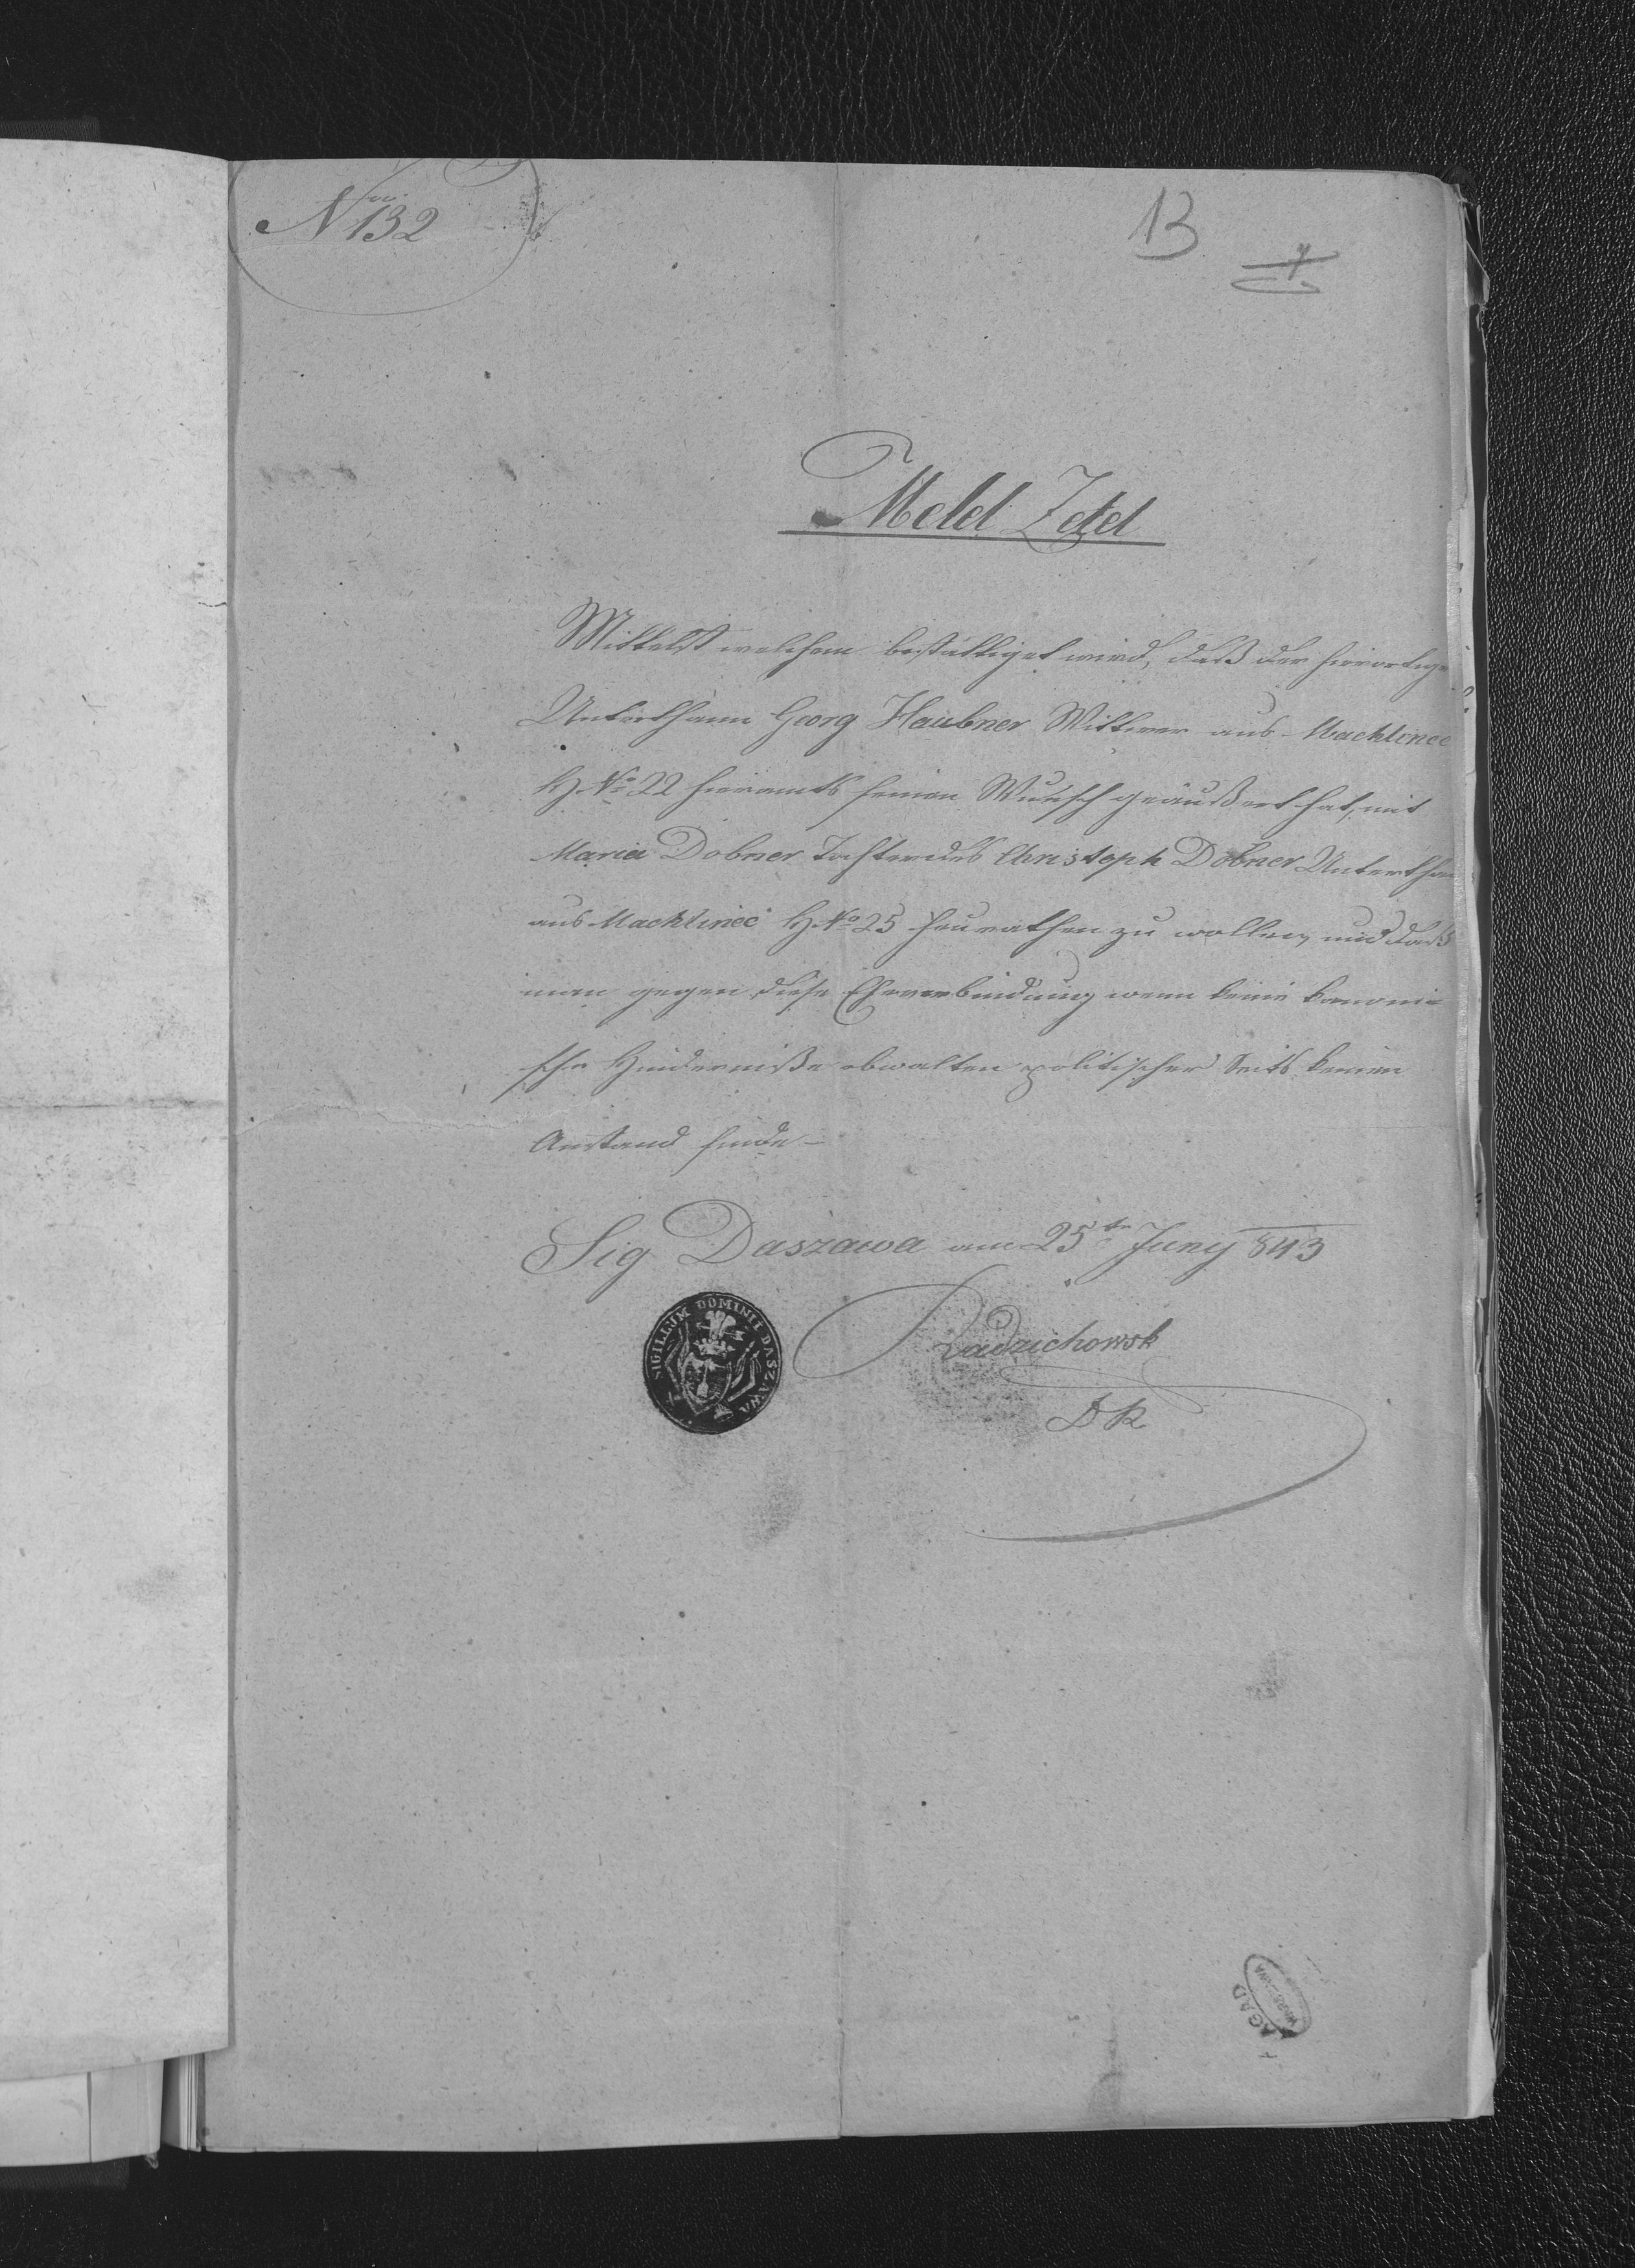 Nro 132
13
7
Meld Zetel
Mittelst welchem bestättiget wird, daß der hierortige
Unterthann Georg Haubner Wittwer aus Machliniec
H No 22 hieramts seinen Wunsch geäußert hat, mit
Maria Dobner Tochter des Christoph Dobner Unterthan
aus Machliniec H No 25 heurathen zu wollen, und daß
man gegen diese Eheverbindung wenn keine kanoni-
sche Hinderniße obwalten politischer Seits keinen
Anstand finde –
Sig Daszawa am 25te Juny 843
SIGILLUM DOMINII DASZAWA
Radzichowsk
DR
AGAD
WARSZAWA